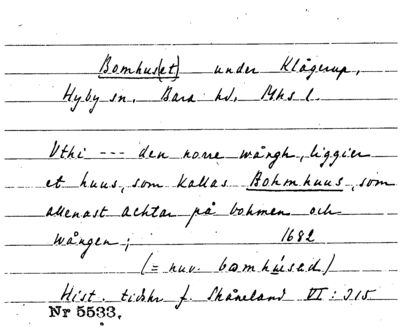 Bomhus[et] under Klågerup,
Hyby sn. Bara hd. Mhs l.
Uthi --- den norre wångh, liggier
et huus, som kallas Bohmhuus, som
allenast achtar på bohmen och
wången; 1682
(= nuv. bomhúsəd)
Hist. tidskr f. Skåneland VI: 315
Nr 5533.